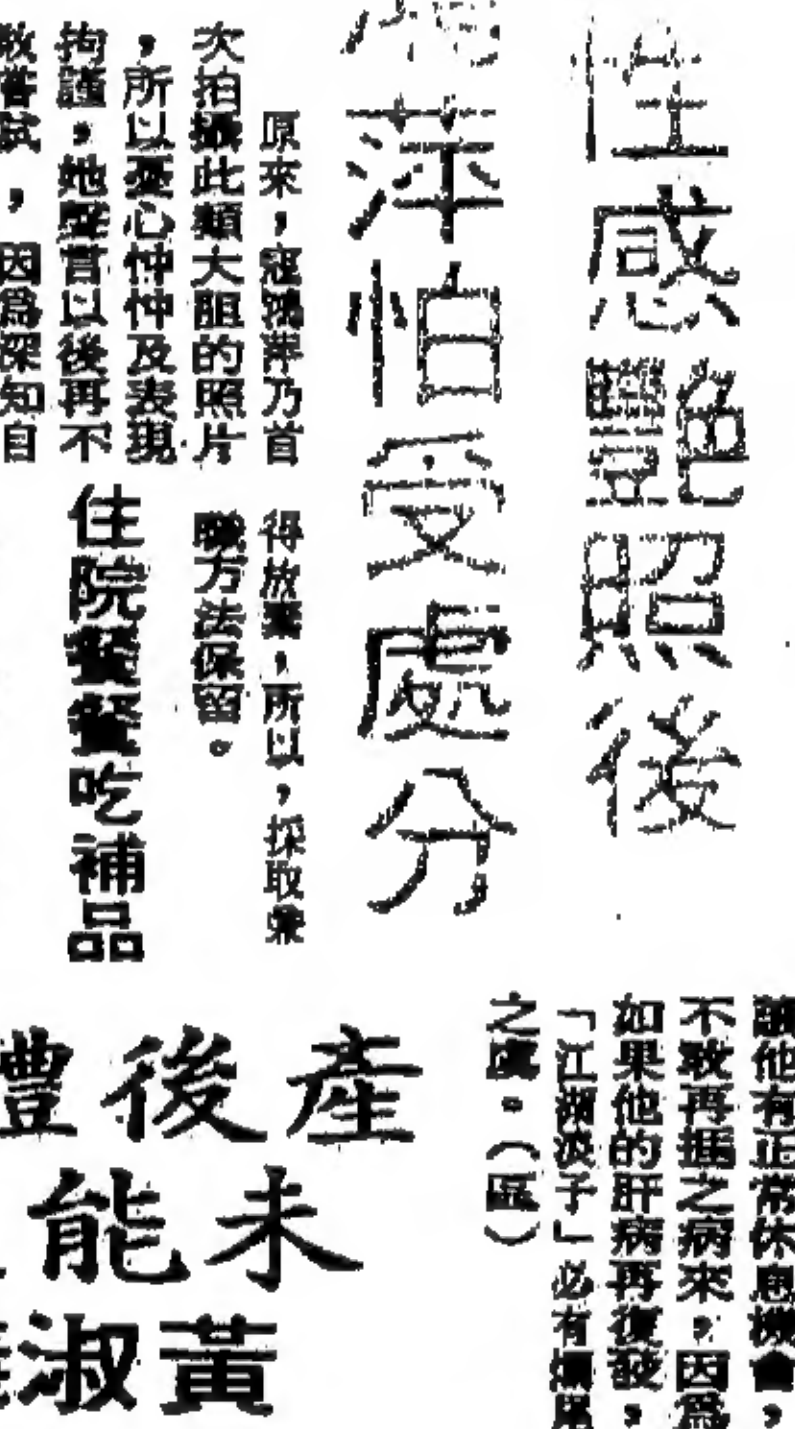 性感艷照後
萍怕受處分
原來，寇鴻萍乃首
次拍攝此類大胆的照片
，所以憂心忡忡及表現
拘謹，她聲言以後再不
敢嘗試，因爲深知自
得放棄，所以，採取
方法保留。
住院餐餐吃補品
讓他有正常休息機會，
不敢再捱之病來，因爲
如果他的肝病再復發，
「江湖浪子」必有爛尾
之虞。（區）
產後
未能
黃淑